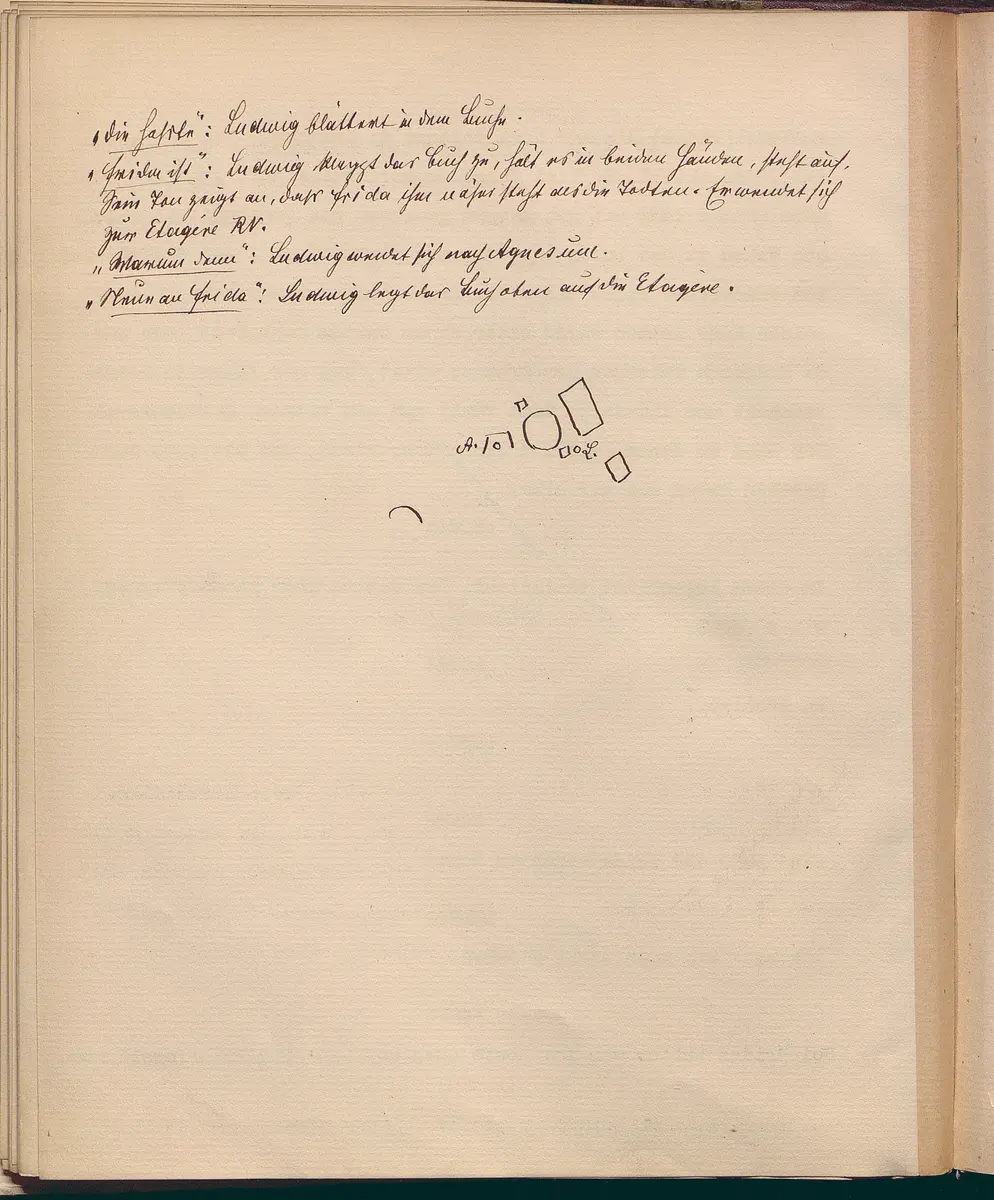 „Die Hälfte“: Ludwig blättert in dem Buche.
„Frida ist“: Ludwig klappt das Buch zu, hält es in beiden Händen, steht auf.
Sein Ton zeigt an, dass Frida ihm näher steht als die Todten. Er wendet sich
zur Etagère RV.
„Warum denn“: Ludwig wendet sich nach Agnes um.
an Frida“: Ludwig legt das Buch oben auf die Etagère.
A.
L.